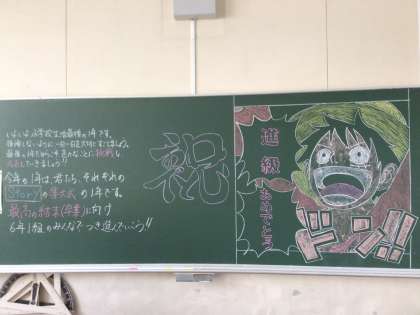 いよいよ小学校生活最後の1年です。
後悔しないように一日一日を大切にすごしましょう。
最後の1年だからこそ、色々なことに挑戦し
ていきましょう!!
6年の1年は、君たち、それぞれの
Storyの集大成の1年です。
最高の結末(卒業)に向け
6年1組のみんなでつき進んでいこう!!
祝
進級
おめでとう
ドン!!